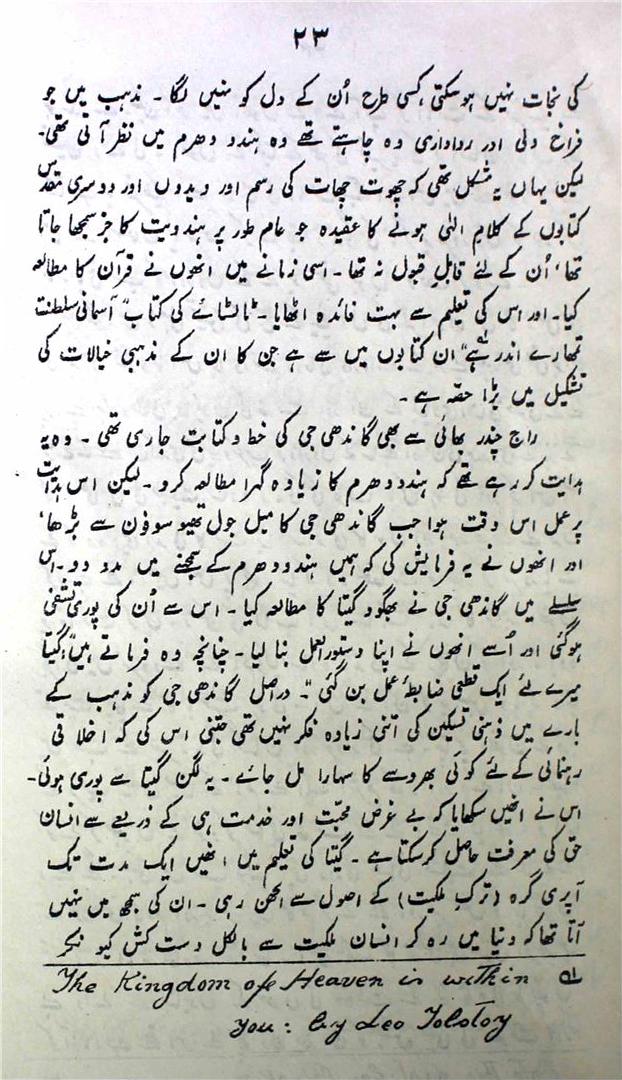 ۲۳
کی نجات نہیں ہوسکتی، کسی طرح اُن کے دل کو نہیں لگا۔ مذہب میں جو
فراخ دلی اور رواداری وہ چاہتے تھے وہ ہندو دھرم میں نظر آتی تھی۔
لیکن یہاں یہ مشکل تھی کہ چھوت چھات کی رسم اور ویدوں اور دوسری مقدس
کتابوں کے کلامِ الٰہی ہونے کا عقیدہ جو عام طور پر ہندویت کا جز سمجھا جاتا
تھا، اُن کے لئے قابلِ قبول نہ تھا۔ اسی زمانے میں انھوں نے قرآن کا مطالعہ
کیا۔ اور اس کی تعلیم سے بہت فائدہ اٹھایا۔ ٹالسٹائے کی کتاب "آسمانی سلطنت
تمھارے اندر ہے" ان کتابوں میں سے ہے جن کا ان کے مذہبی خیالات کی
تشکیل میں بڑا حصّہ ہے۔
راج چندر بھائی سے بھی گاندھی جی کی خط و کتابت جاری تھی۔ وہ یہ
ہدایت کر رہے تھے کہ ہندو دھرم کا زیادہ گہرا مطالعہ کرو۔ لیکن اس ہدایت
پر عمل اس وقت ہوا جب گاندھی جی کا میل جول تھیوسوفوں سے بڑھا،
اور انھوں نے یہ فرمایش کی کہ ہمیں ہندو دھرم کے سمجھنے میں مدد دو۔ اس
سلسلے میں گاندھی جی نے بھگود گیتا کا مطالعہ کیا۔ اس سے اُن کی پوری تشفی
ہوگئی اور اُسے انھوں نے اپنا دستورالعمل بنا لیا۔ چنانچہ وہ فرماتے ہیں "گیتا
میرے لئے ایک قطعی ضابطۂ عمل بن گئی"۔ دراصل گاندھی جی کو مذہب کے
بارے میں ذہنی تسکین کی اتنی زیادہ فکر نہیں تھی جتنی اس کی کہ اخلاقی
رہنمائی کے لئے کوئی بھروسے کا سہارا مل جائے۔ یہ لگن گیتا سے پوری ہوئی۔
اس نے انھیں سکھایا کہ بے غرض محبّت اور خدمت ہی کے ذریعے سے انسان
حق کی معرفت حاصل کرسکتا ہے۔ گیتا کی تعلیم میں انھیں ایک مدت تک
اَپری گرہ (ترکِ ملکیت) کے اصول سے الجھن رہی۔ ان کی سمجھ میں نہیں
آتا تھا کہ دنیا میں رہ کر انسان ملکیت سے بالکل دست کش کیونکر
The Kingdom of Heaven is within
you: by Leo Tolstoy